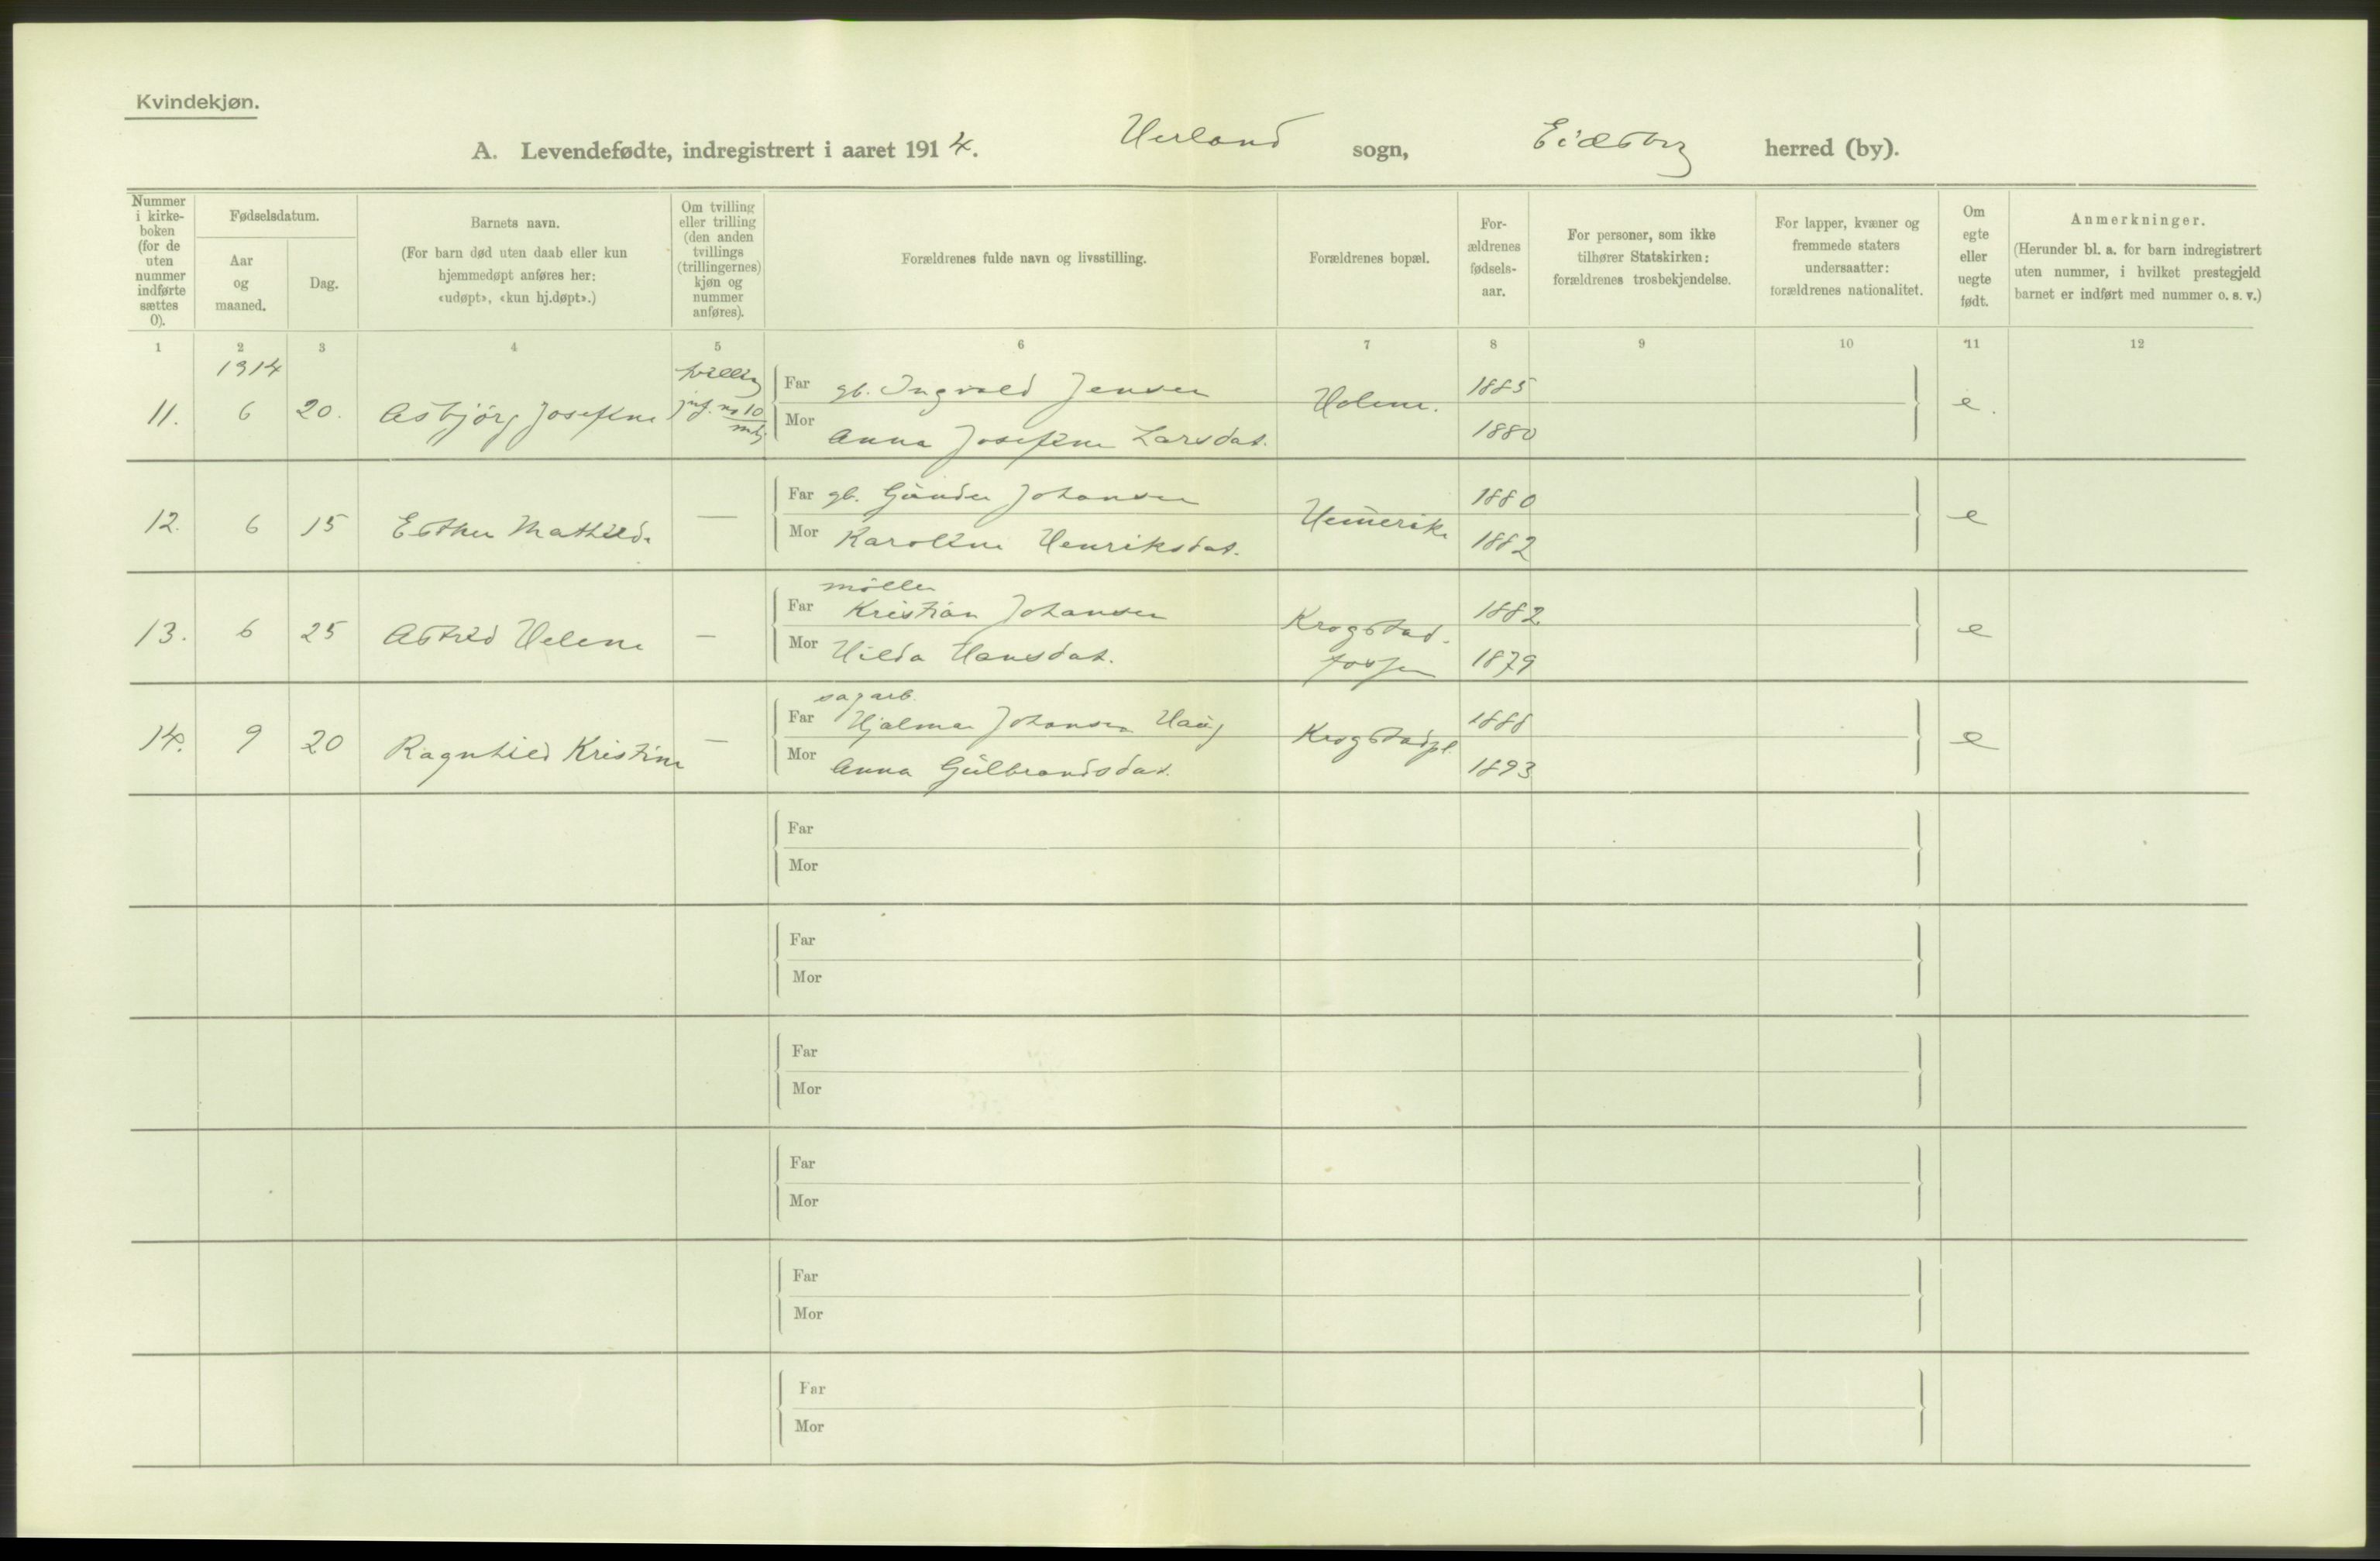 Kvindekjøn.
A. Levendefødte, indregistrert i aaret 1914. Herland sogn, Eidsberg herred (by).
Nummer i kirke-boken (for de uten nummer indførte sættes 0).
Fødselsdatum.
Aar og maaned.
Dag.
Barnets navn.
(For barn død uten daab eller kun hjemmedøpt anføres her: «udøpt», «kun hj.døpt».)
Om tvilling eller trilling (den anden tvillings (trillingernes) kjøn og nummer anføres).
Forældrenes fulde navn og livsstilling.
Forældrenes bopæl.
For-ældrenes fødsels-aar.
For personer, som ikke tilhører Statskirken: forældrenes trosbekjendelse.
For lapper, kvæner og fremmede staters undersaatter: forældrenes nationalitet.
Om egte eller uegte født.
Anmerkninger.
(Herunder bl. a. for barn indregistrert uten nummer, i hvilket prestegjeld barnet er indført med nummer o. s. v.)
1 2 3 4 5 6 7 8 9 10 11 12
1914
11. 6 20. Asbjørg Josefine tvilling jnf. no 10 mk. Far gb. Ingvald Jensen Holene. 1885 e.
Mor Anna Josefine Larsdat. 1880
12. 6 15 Esther Mathilde — Far gb. Günder Johansen 1880 e
Mor Karoline Henriksdat. 1882
møller
13. 6 25 Astrid Helene — Far Kristian Johansen Krogstad- 1882 e
Mor Hilda Hansdat. fossen 1879
sagarb.
14. 9 20 Ragnhild Kristine — Far Hjalmar Johansen Haüg Krogstadpl. 1888 e
Mor Anna Gülbrandsdat. 1893
Far
Mor
Far
Mor
Far
Mor
Far
Mor
Far
Mor
Far
Mor